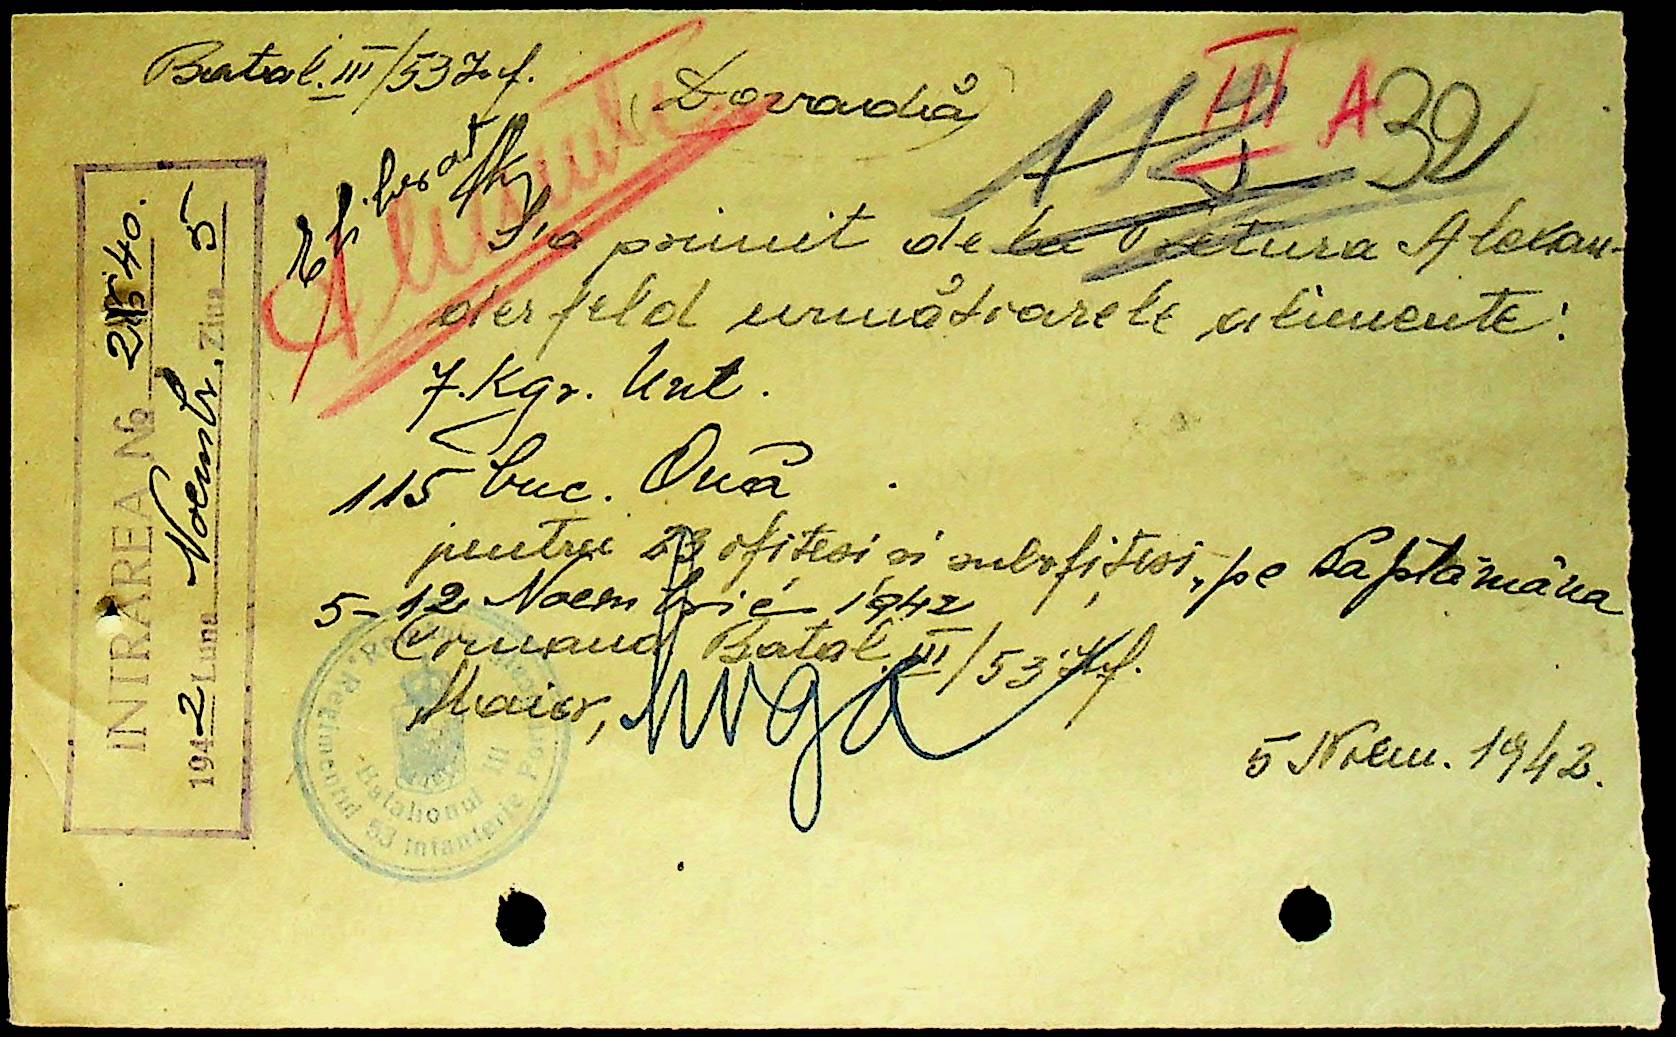 Batal. III/53 Inf.
(Dovadă)
III A 39
Eliberat
Alimente
S'a primit de la Pretura Alexan-
derfeld următoarele alimente:
7. Kgr. Unt.
115 buc. Ouă
pentru 23 ofițeri si subofițeri, pe săptămâna
5-12 Noembrie 1942
Comand Batal. III/53 Inf.
Maior,
5 Noem. 1942.
INTRAREA No 40.
1942 Luna Noembr. Ziua 5
Regimentul 53 Infanterie
Batalionul III